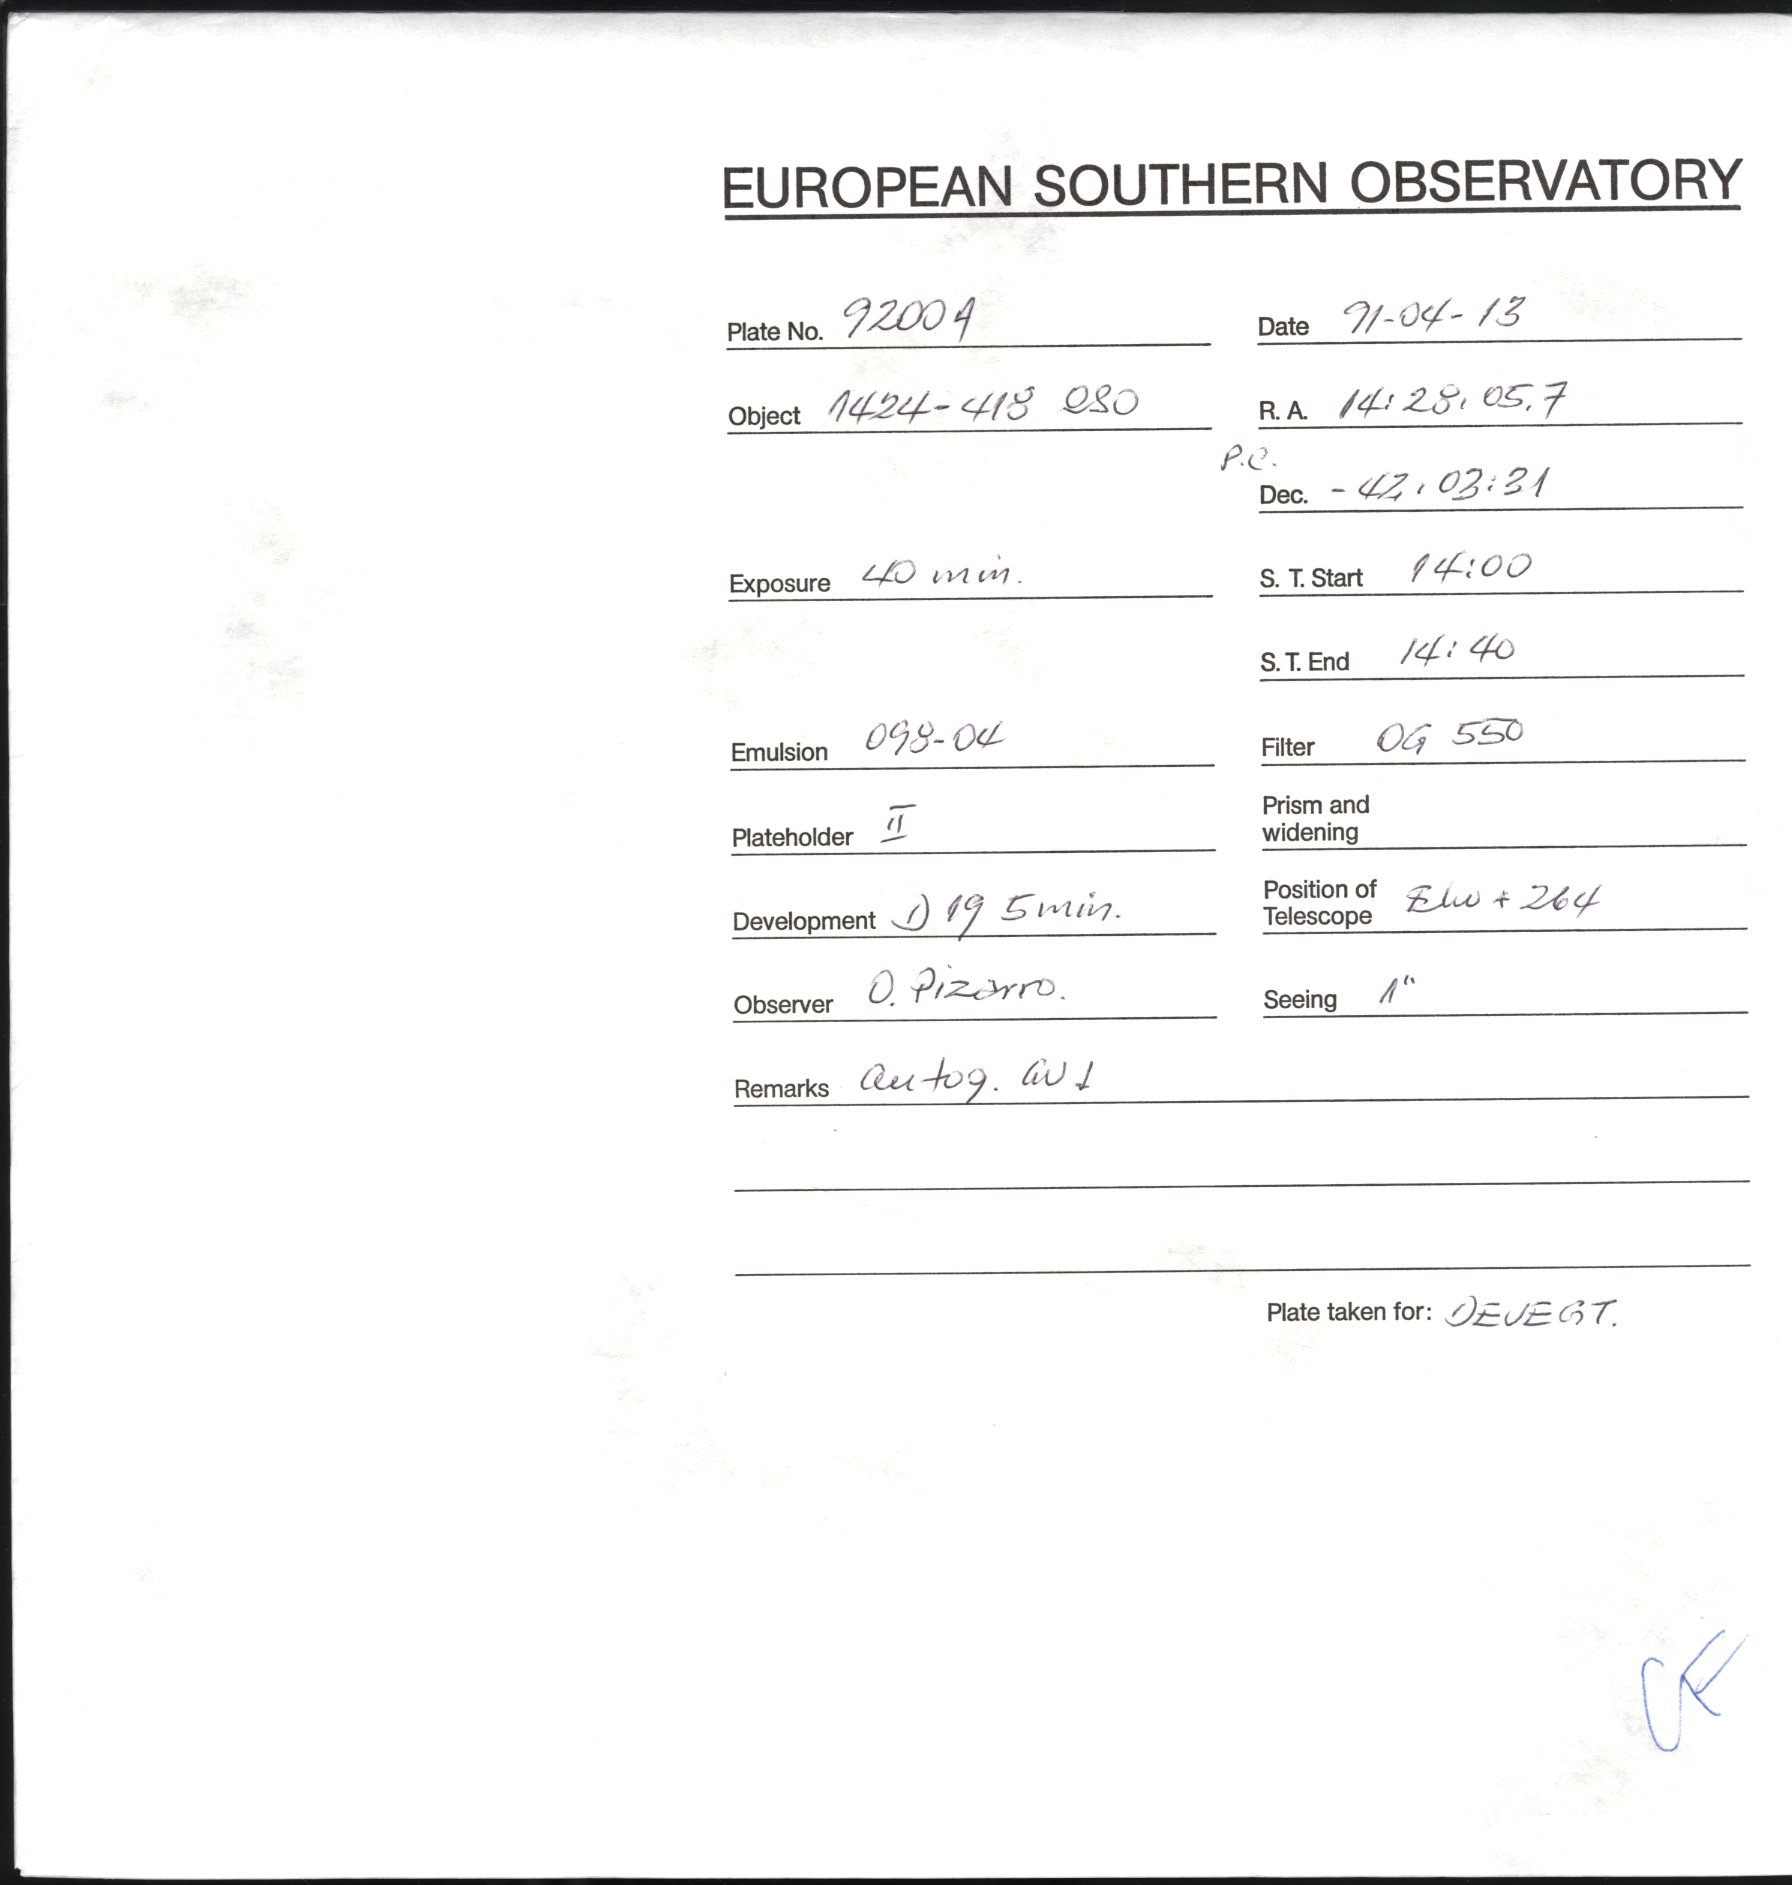 EUROPEAN SOUTHERN OBSERVATORY
Plate No. 9200A Date 91-04-13
Object 1424-418 QSO R. A. 14:28:05.7
P.C.
Dec. -42:03:31
Exposure 40 min. S. T. Start 14:00
S. T. End 14:40
Emulsion 098-04 Filter OG 550
Plateholder II Prism and
widening
Development D 19 5 min. Position of
Telescope + 264
Observer O. Pizarro. Seeing 1"
Remarks autog.
Plate taken for: DEVEGT.